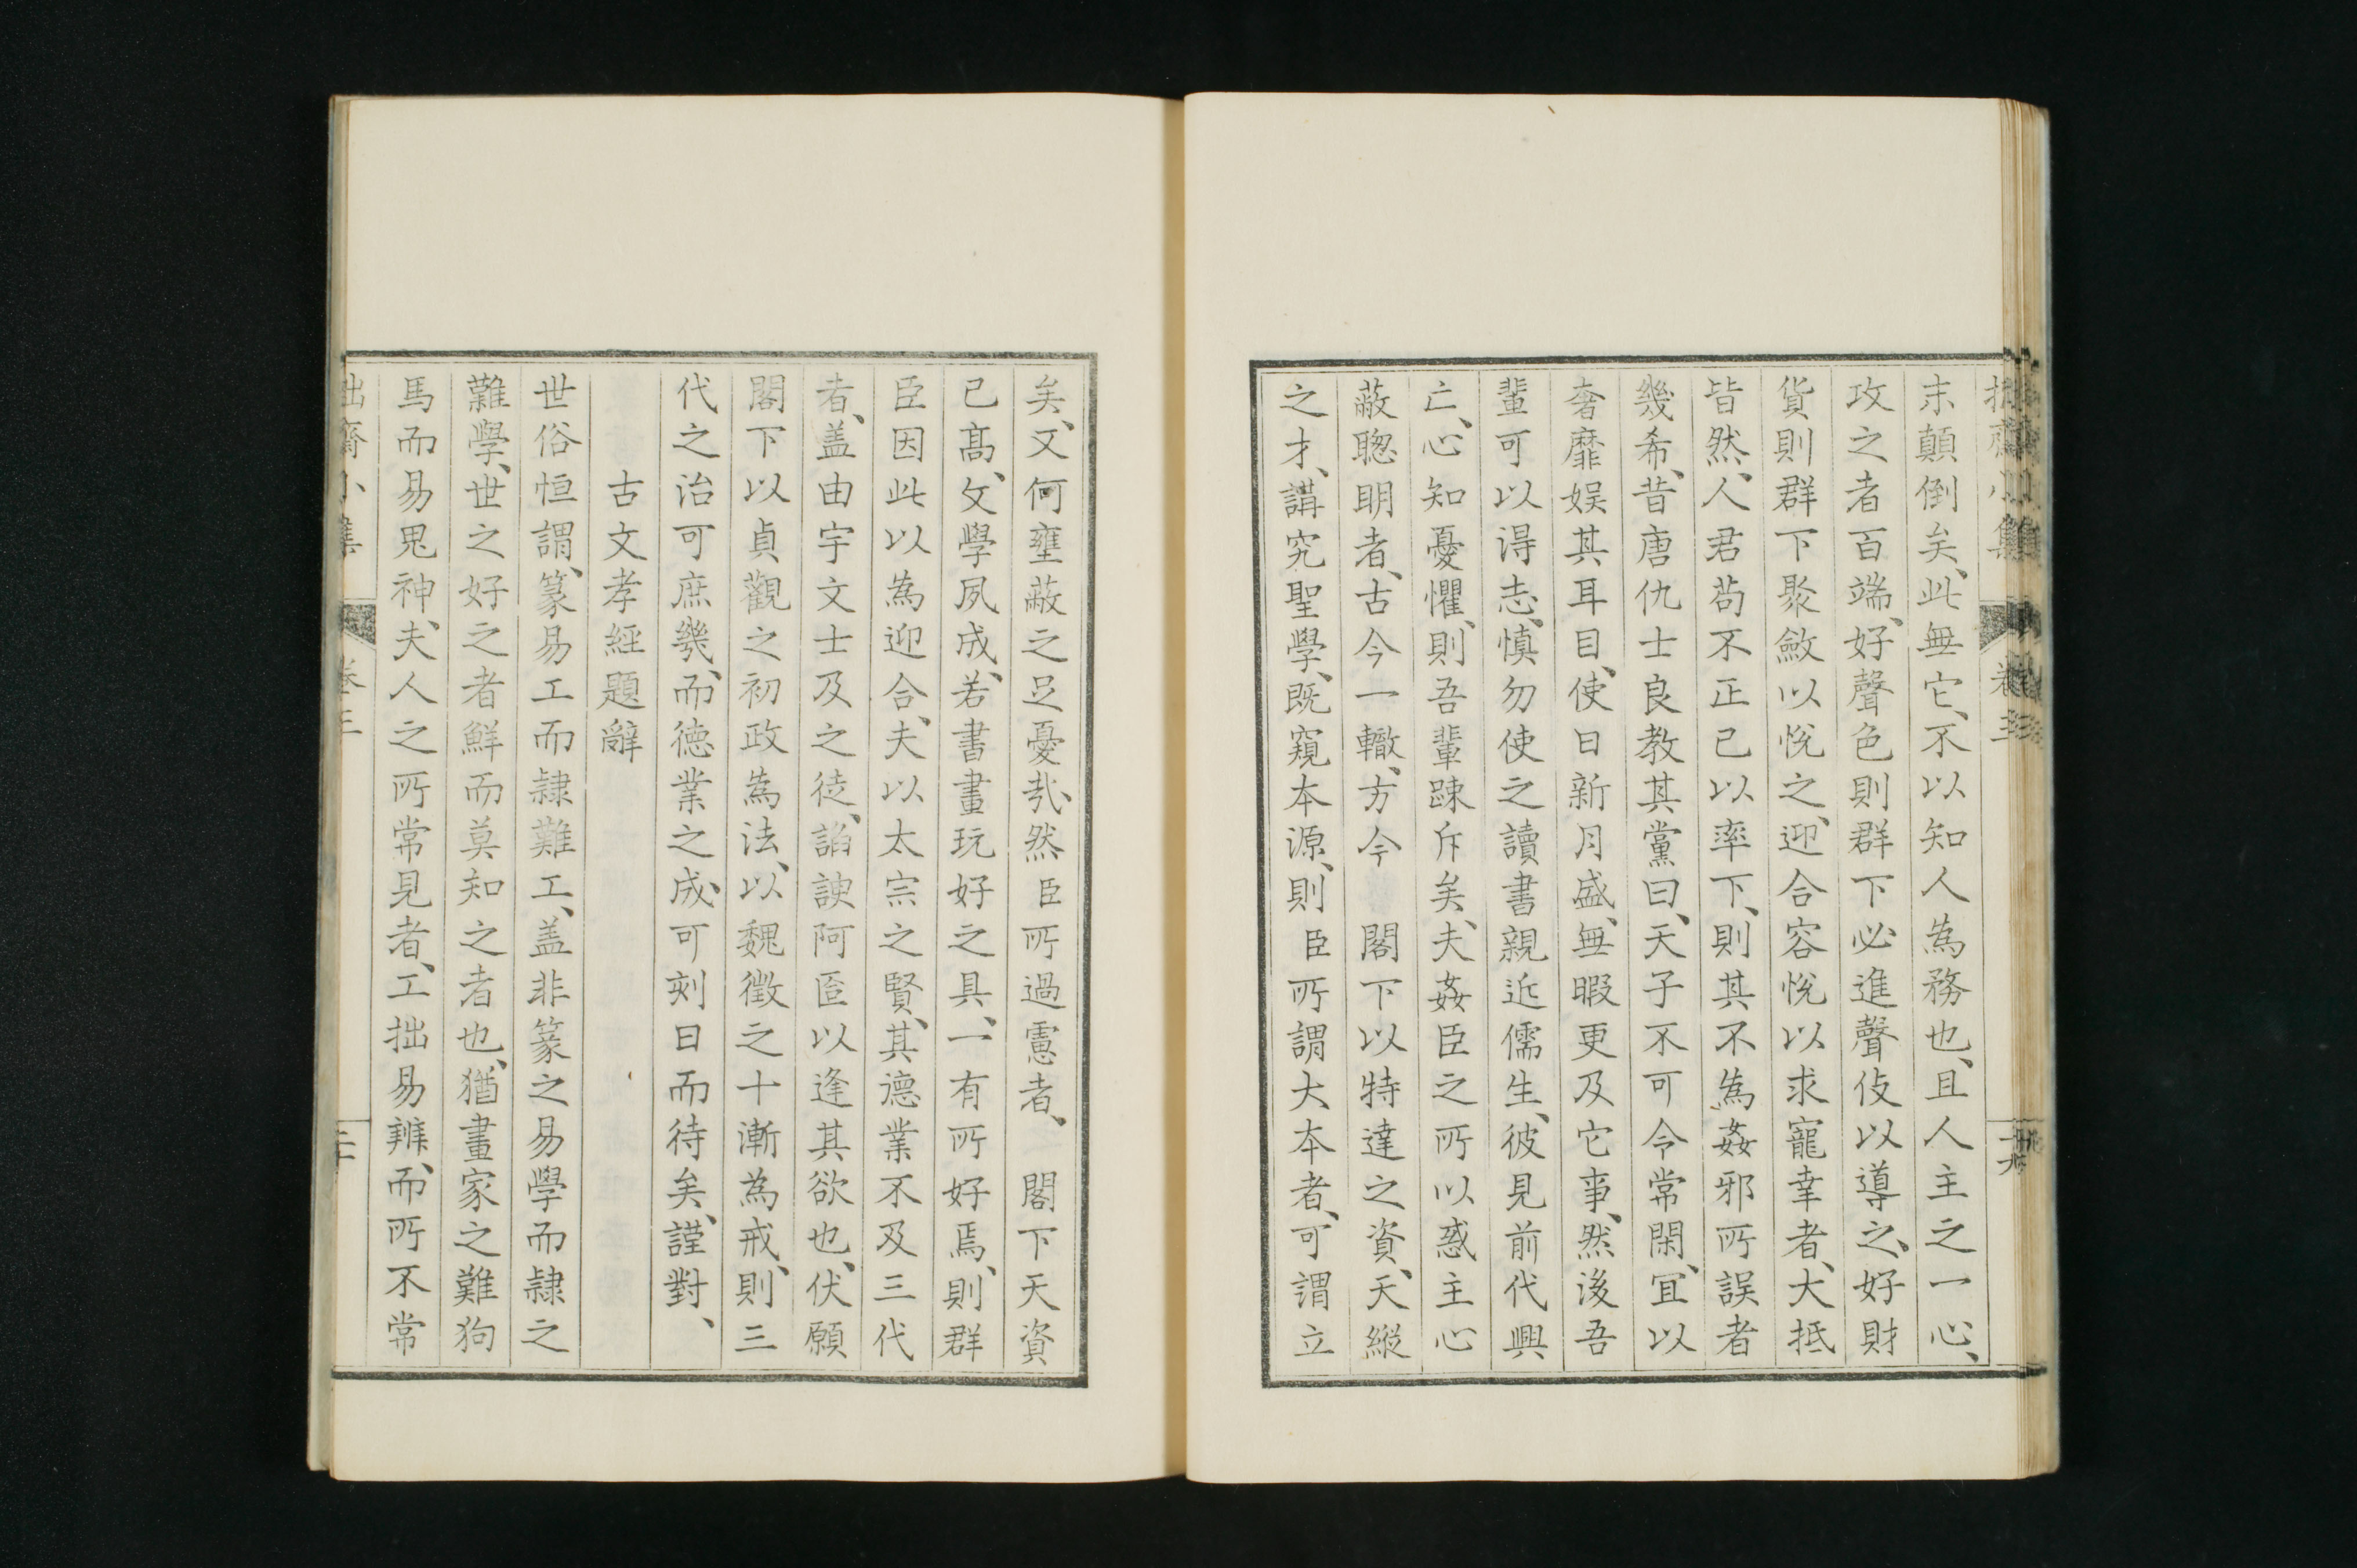 末顛倒矣、此無它、不以知人為務也、且人主之一心、
攻之者百端、好聲色則群下必進聲伎以導之、好財
貨則群下聚斂以悅之、迎合容悅以求寵幸者、大抵
皆然、人君苟不正己以率下、則其不為姦邪所誤者
幾希、昔唐仇士良教其黨曰、天子不可令常閑、冝以
奢靡娛其耳目、使日新月盛、無暇更及它事、然後吾
輩可以得志、慎勿使之讀書親近儒生、彼見前代興
亡、心知憂懼、則吾輩踈斥矣、夫姦臣之所以惑主心
蔽聰明者、古今一轍、方今　閣下以特達之資、天縱
之才、講究聖學、既窺本源、則臣所謂大本者、可謂立
矣、又何壅蔽之足憂哉、然臣所過慮者、　閣下天資
已高、文學夙成、若書畫玩好之具、一有所好焉、則群
臣因此以為迎合、夫以太宗之賢、其德業不及三代
者、盖由宇文士及之徒、諂諛阿匼以逢其欲也、伏願
閣下以貞觀之初政為法、以魏徵之十漸為戒、則三
代之治可庶幾、而德業之成、可刻日而待矣、謹對、
古文孝經題辭
世俗恒謂、篆易工而隷難工、盖非篆之易學而隷之
難學、世之好之者鮮而莫知之者也、猶畫家之難狗
馬而易鬼神、夫人之所常見者、工拙易辨、而所不常
拙齋小集
卷三